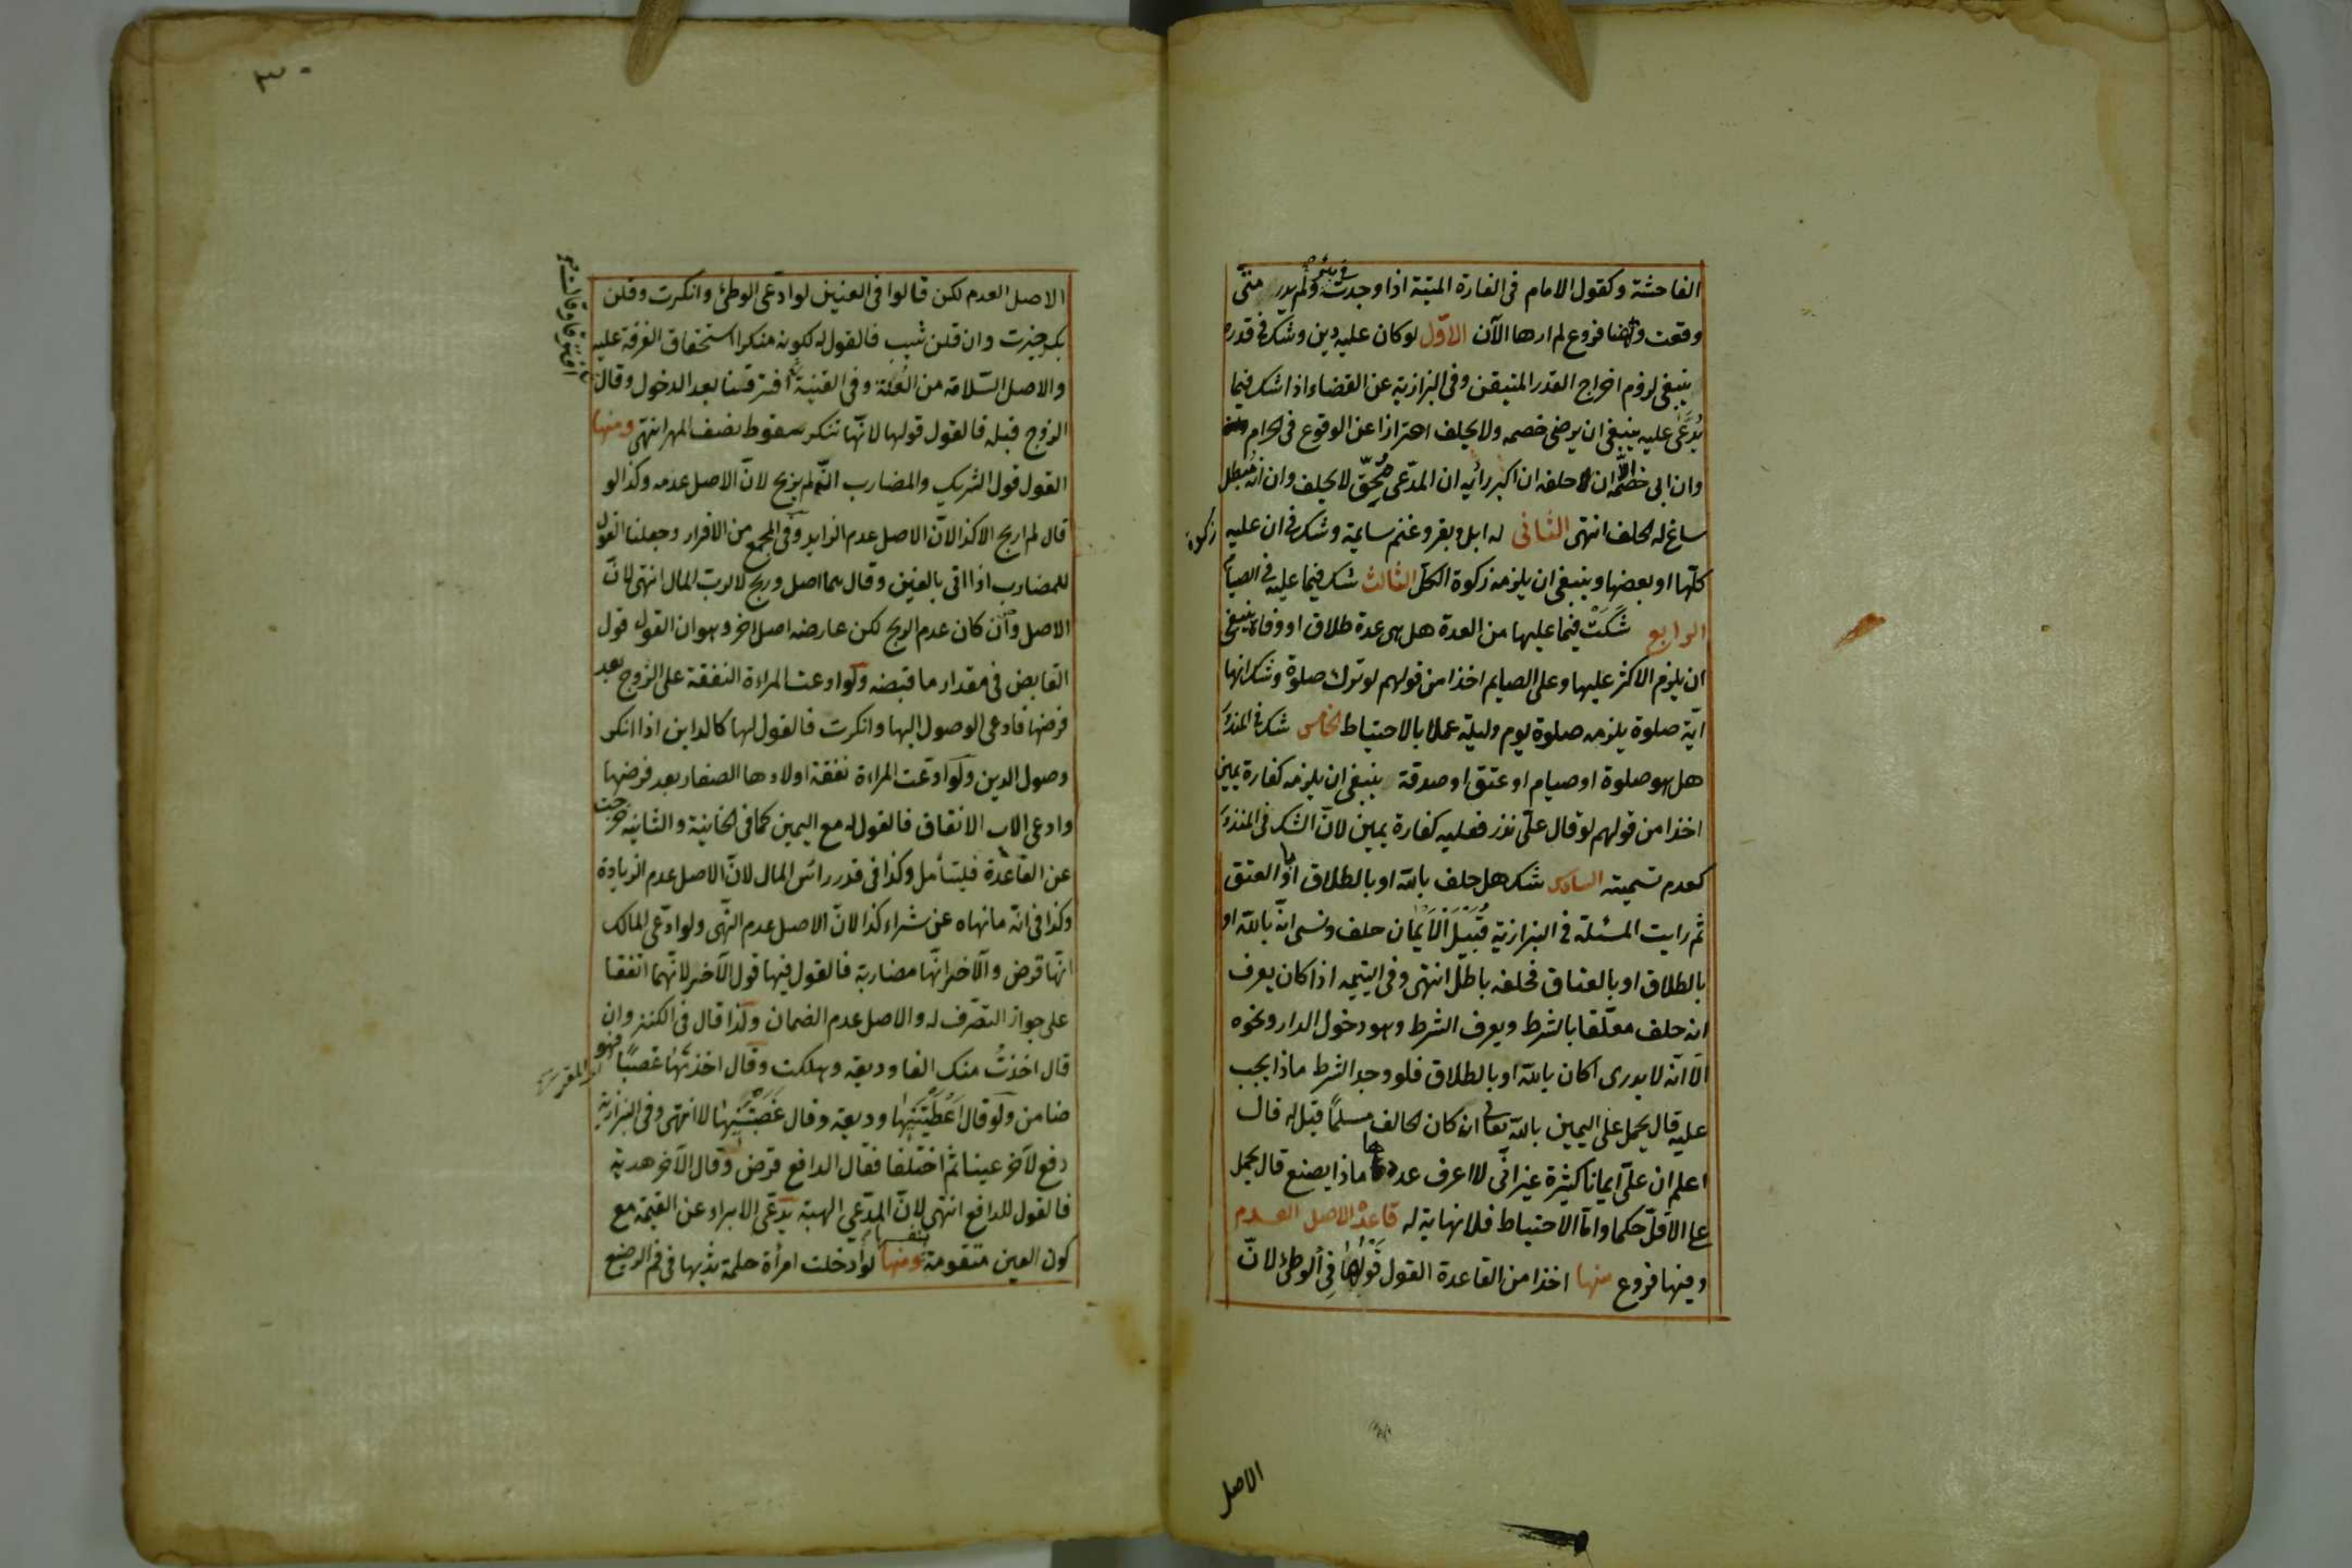 الفاحشة وكقول الامام فى الفارة الميتة اذا وجدت فى بئر ولم يدر متى
وقعت وههنا فروع لم ارها الآن الاوّل لو كان عليه دين وشك فى قدره
ينبغى لزوم اخراج القدر المتيقن وفى البزازية عن القضاء اذا شك فيما
يُدّعى عليه ينبغى ان يرضى خصمه ولا يحلف احترازا عن الوقوع فى الحرام
وان ابى خصمه الا حلفه ان اكبر رائيه ان المدّعى مُحِقّ لا يحلف وان انّه مُبطل
ساغ له الحلف انتهى الثانى له ابل وبقر وغنم سايمة وشك فى ان عليه زكوة
كلّها او بعضها وينبغى ان يلزمه زكوة الكل الثالث شك فيما عليه فى الصيام
الرابع شَكَّتْ فيما عليها من العدة هل هى عدة طلاق او وفاة ينبغى
ان يلزم الاكثر عليها وعلى الصايم اخذا من قولهم لو ترك صلوة وشك انها
ايّة صلوة يلزمه صلوة يوم وليلة عملا بالاحتياط الخامس شك فى المنذور
هل هو صلوة او صيام او عتق او صدقة ينبغى ان يلزمه كفارة يمين
اخذا من قولهم لو قال علىّ نذر فعليه كفارة يمين لانّ الشك فى المنذور
كعدم تسميته السادس شك هل حلف بالله او بالطلاق او بالعتق
ثم رايت المسئلة فى البزازية قُبَيْلَ الْأَيْمان حلف ونسى انّه بالله او
بالطلاق او بالعتاق فحلفه باطل انتهى وفى اليتيمه اذا كان يعرف
انه حلف معلّقا بالشرط ويعرف الشرط وهو دخول الدار ونحوه
الّا انّه لا يدرى اكان بالله او بالطلاق فلو وجد الشرط ماذا يجب
عليه قال يحمل على اليمين بالله تعالى ان كان الحالف مسلمًا قيل له قال
اعلم ان علىّ ايمانا كثيرة غير انّى لا اعرف عددها ماذا يصنع قال يحمل
على الاقلّ حكما وامّا الاحتياط فلا نهاية له قاعدة الاصل العدم
وفيها فروع منها اخذا من القاعدة القول قَوْلُهُا فِى الوطئ لانّ
الاصل
٣٠
الاصل العدم لكن قالوا فى العنين لو ادعى الوطئ وانكرت وقلن
بكر خيرت وان قلن ثيب فالقول له لكونه منكرا استحقاق الفرقة عليه
والاصل السّلامة من العُنّة وفى القنية افترقنا بعد الدخول وقال
افترقا وقالت
الزوج قبله فالقول قولها لانّها تنكر سقوط نصف المهر انتهى ومنها
القول قول الشريك والمضارب انّه لم يربح لانّ الاصل عدمه وكذا لو
قال لم اربح الا كذا لانّ الاصل عدم الزايد وفى المجمع من الاقرار وجعلنا القول
للمضارب اذا اتى بالفين وقال هما اصل وربح لا لرب المال انتهى لانّ
الاصل وان كان عدم الربح لكن عارضه اصل اخر وهو ان القول قول
القابض فى مقدار ما قبضه ولو ادعت المراءة النفقة على الزوج بعد
فرضها فادعى الوصول اليها وانكرت فالقول لها كالداين اذا انكر
وصول الدين ولو ادعت المراءة نفقة اولادها الصغار بعد فرضها
وادعى الاب الانفاق فالقول له مع اليمين كما فى الخانية والثانية خرجت
عن القاعدة فليتأمل وكذا فى قدر رائس المال لانّ الاصل عدم الزيادة
وكذا فى انّه ما نهاه عن شراء كذا لانّ الاصل عدم النّهى ولو ادّعى المالك
انّها قرض والآخر انّها مضاربة فالقول فيها قول الآخر لانّهما اتفقا
على جواز التصّرف له والاصل عدم الضمان ولذا قال فى الكنز وان
قال اخذتُ منك الفا وديعة وهلكت وقال اخذتَها غصبًا فهو
ضامن ولو قال اَعْطَيْتَنِيْهَا وديعة وقال غَصَبْتَنِيْهَا لا انتهى وفى البزازية
دفع لآخر عينا ثم اختلفا فقال الدافع قرض وقال الآخر هدية
فالقول للدافع انتهى لانّ المدّعى الهبة يدّعى الابراء عن القيمة مع
كون العين متقومة بنفسها ومنها لو ادخلت امرأة حلمة ثديها فى فم الرضيع